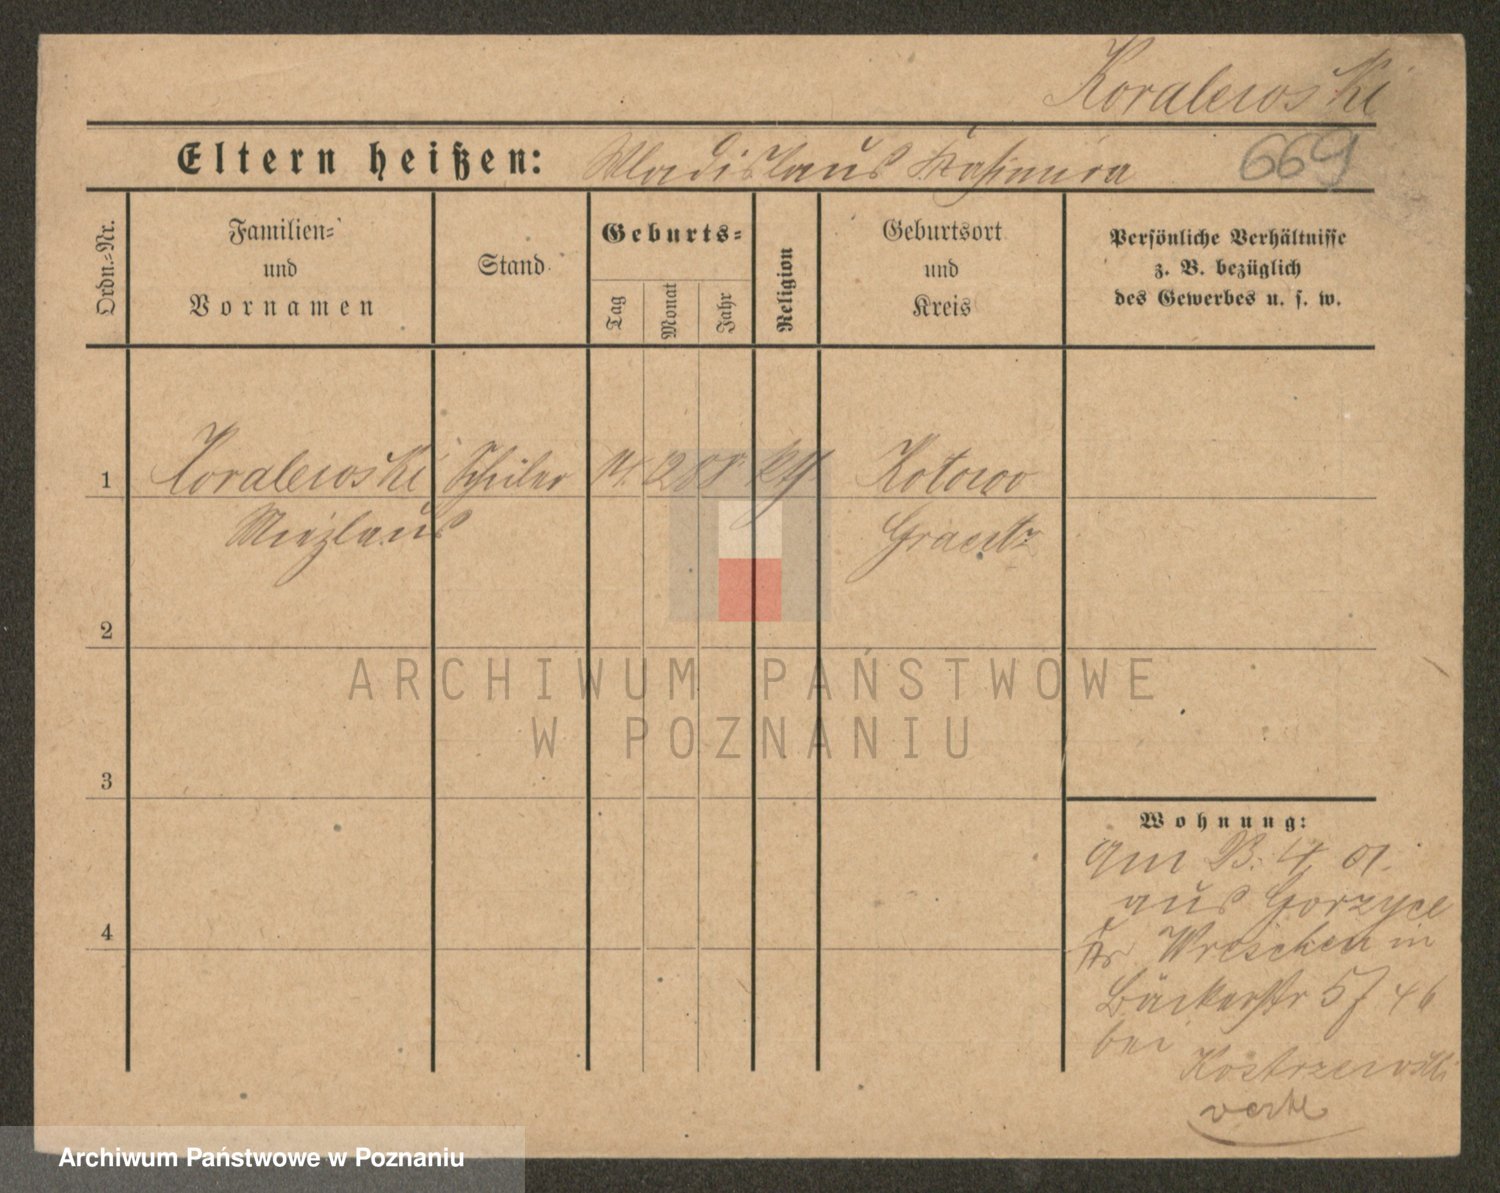 Koralewski
Eltern heißen: Wladislaus Kasimira
669
Ordn.-Nr.
Familien-
und
Vornamen
Stand
Geburts-
Tag
Monat
Jahr
Religion
Geburtsort
und
Kreis
Persönliche Verhältnisse
z. B. bezüglich
des Gewerbes u. s. w.
1 Koralewski Schüler 14. 2 88 kth Kotowo
Miezlaus Graetz
2
ARCHIWUM PAŃSTWOWE
W POZNANIU
3
Wohnung:
am 13. 4. 01.
aus Gorzyce
4
Kr Wreschen in
Bäckerstr 5
bei
Kostrzewski
Archiwum Państwowe w Poznaniu